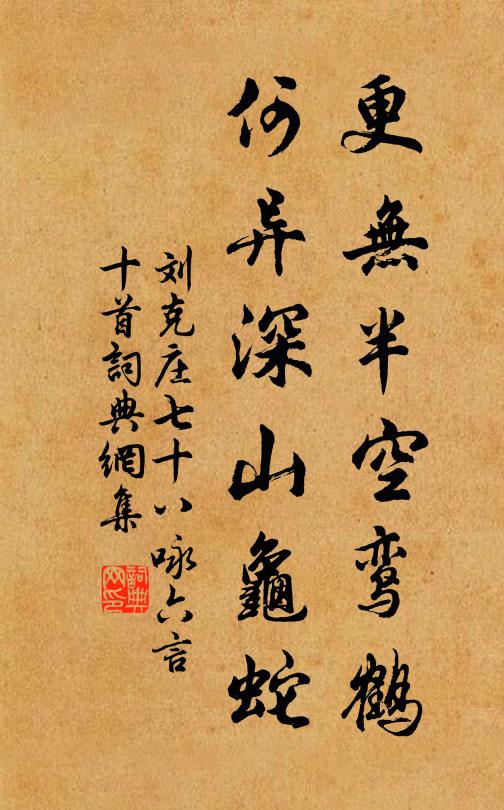 更無半空鸾鶴
何异深山龜蛇
刘克庄七十八咏六言
十首詞典網集
詞典网印